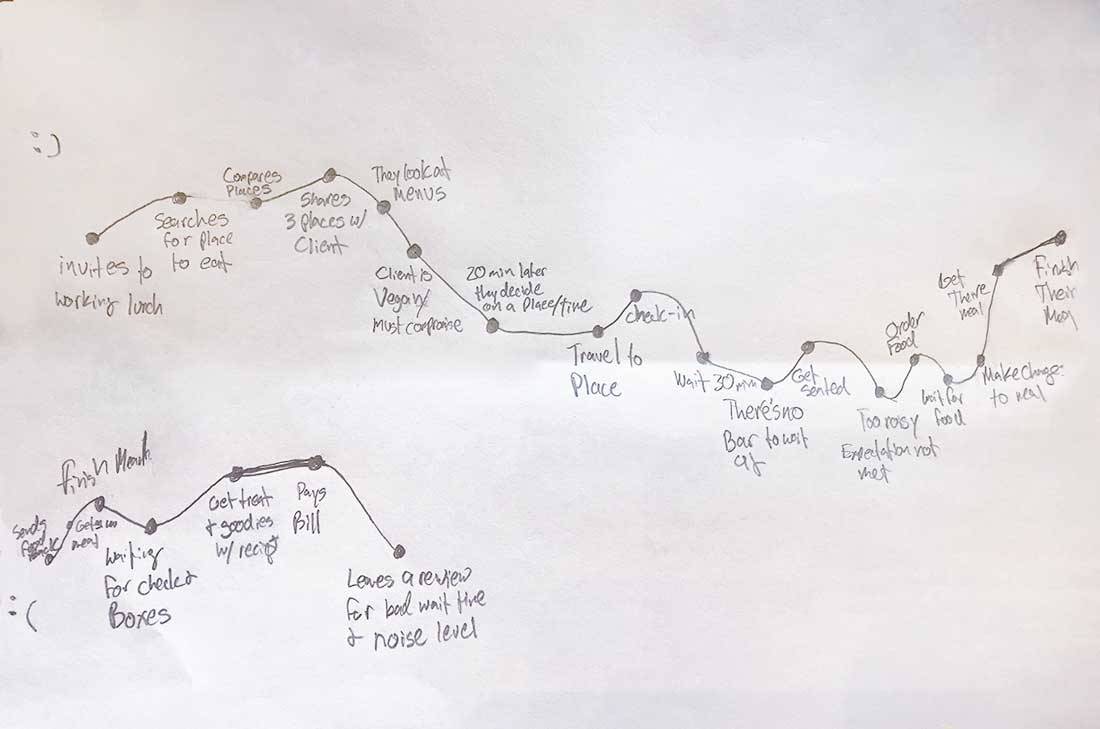 :)
invites to
working lunch
Searches
for place
to eat
Compares
Places
Shares
3 places w/
Client
They look at
Menus
Client is
Vegan/
Must compromise
20 min later
they decide
on a place/time
Travel to
Place
check-in
Wait 30 min
There's no
Bar to wait
at
Get
seated
Too noisy
Expectation not
met
Order
Food
Wait for
food
Make change
to meal
Get
There
meal
Finish
Their
:(
Sends
food
back
Gets
meal
Finish
Waiting
for check &
Boxes
Get treat
& goodies
w/
Pays
Bill
Leaves a review
for bad wait time
& noise level